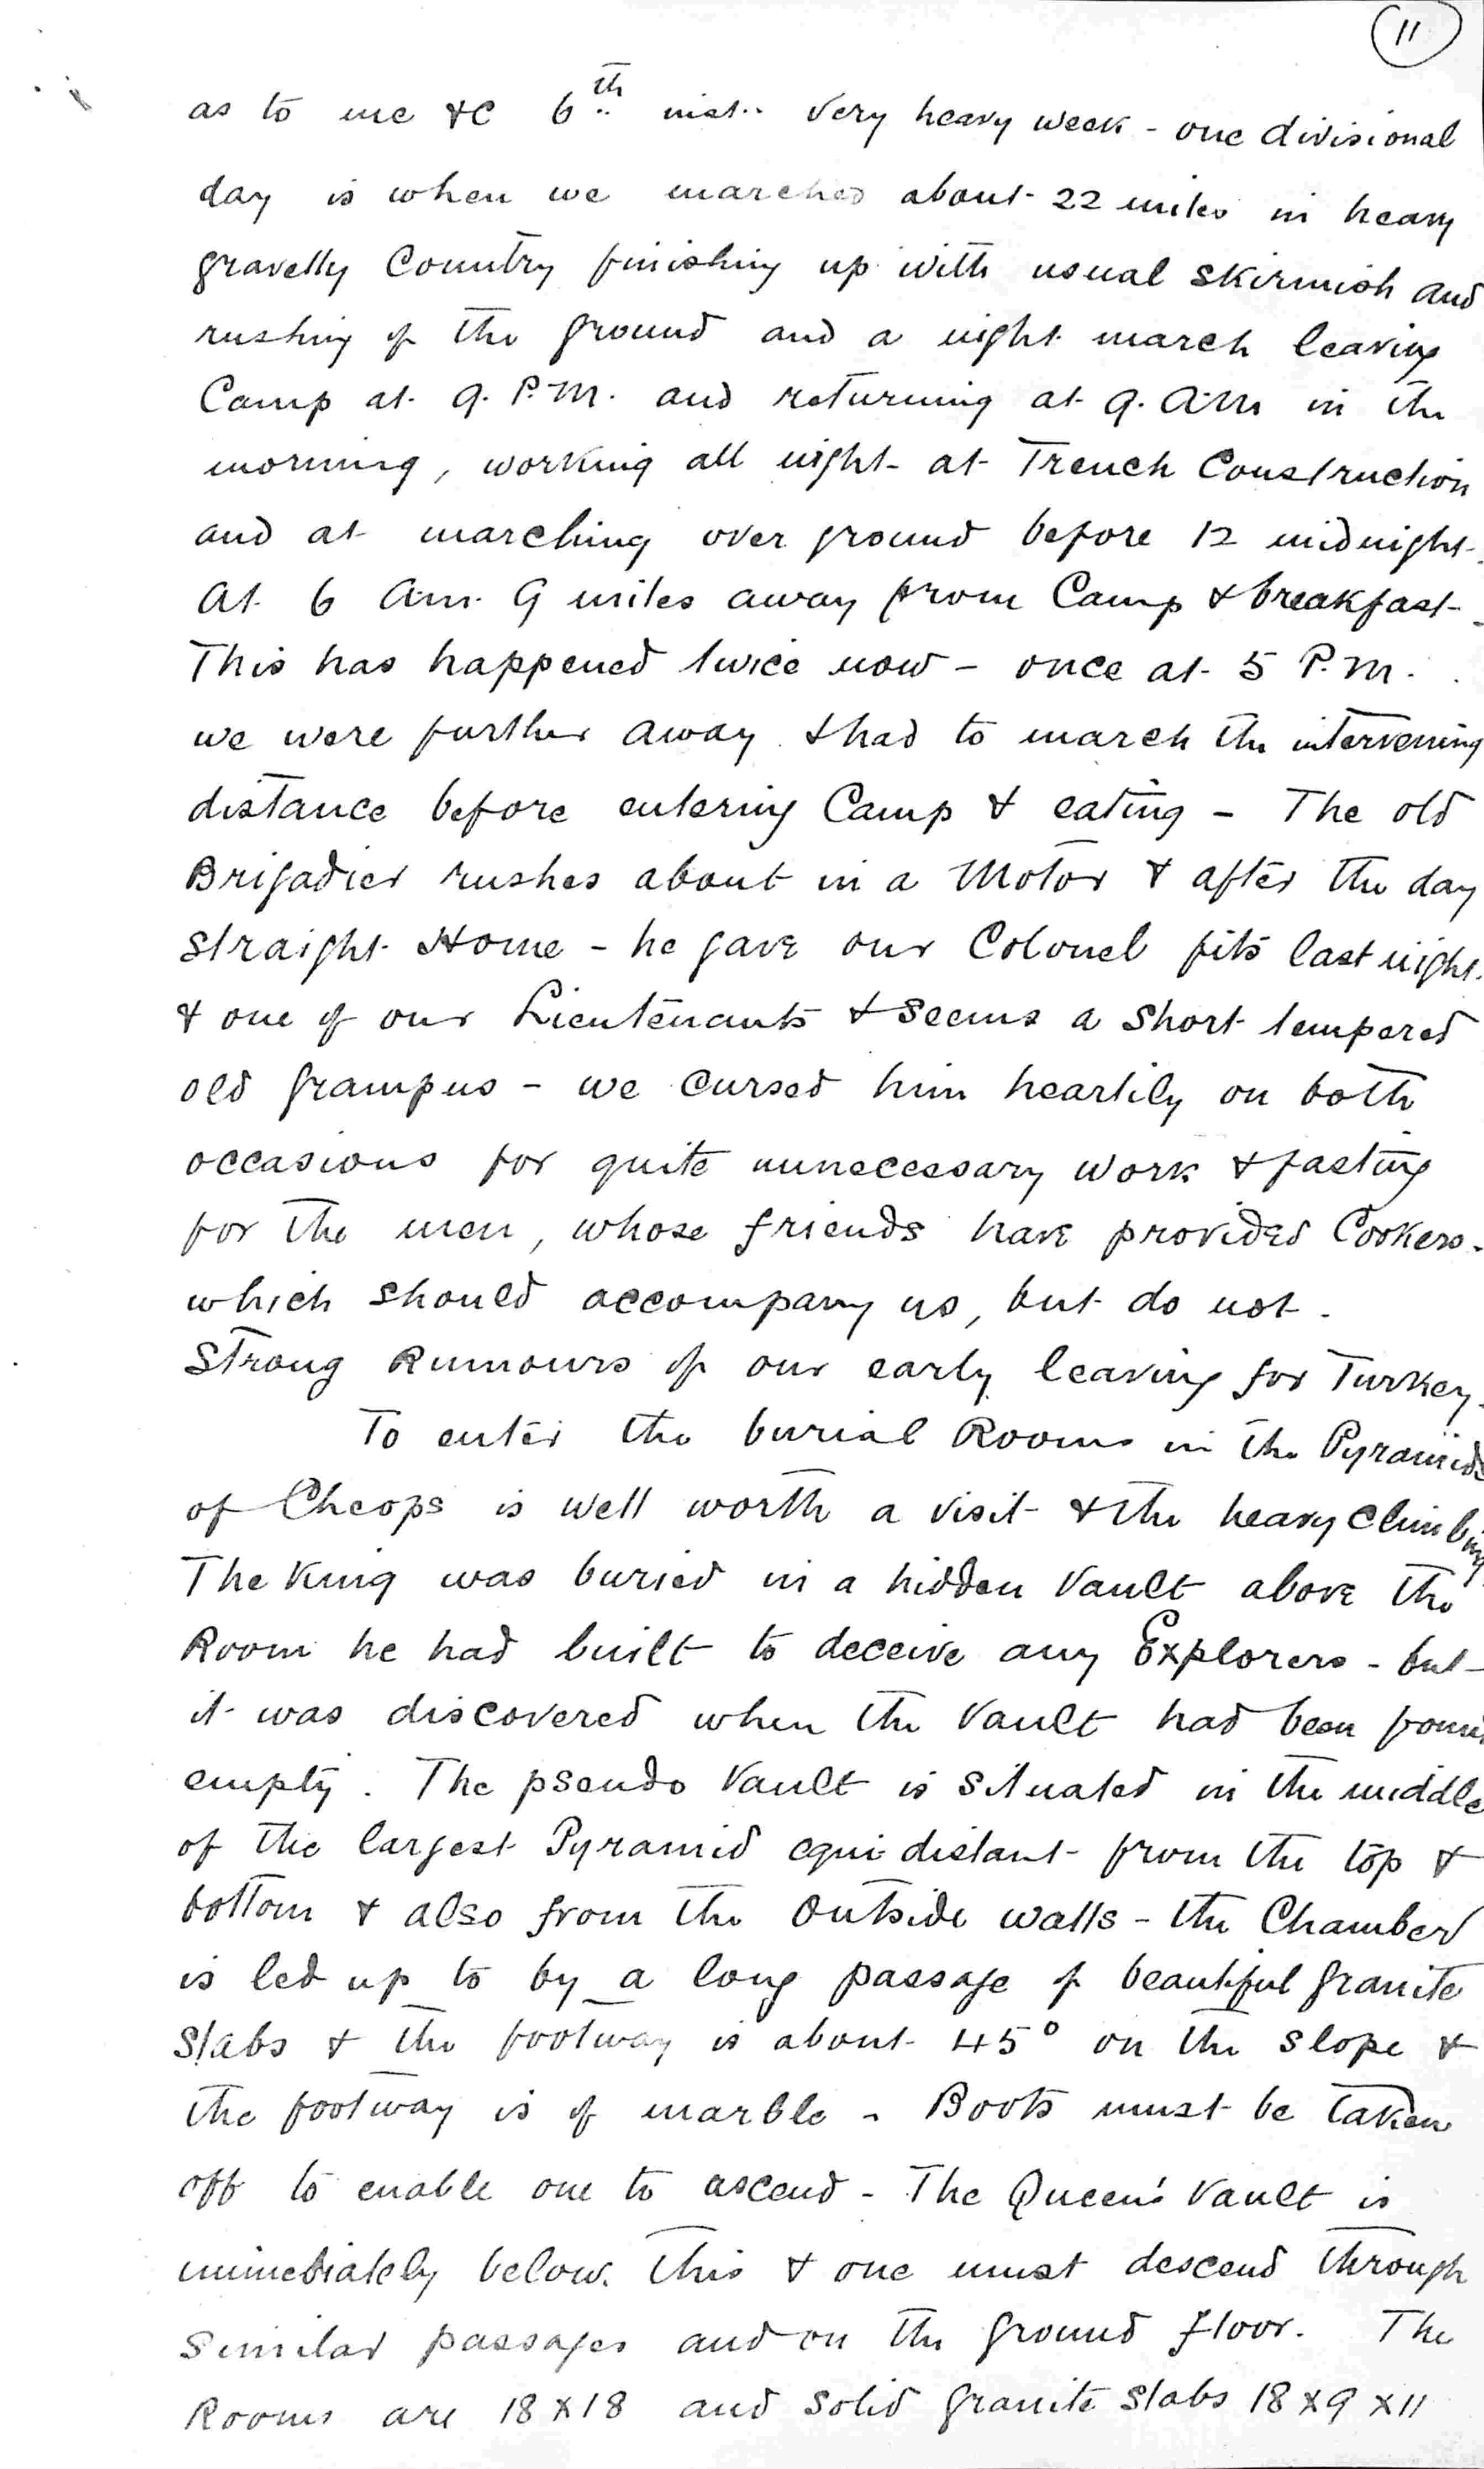 11
as to me &C 6th inst.. Very heavy week - one divisional
day is when we marched about 22 miles in heavy
gravelly Country finishing up with usual skirmish and
rushing of the ground and a night march leaving
Camp at 9. P.M. and returning at 9. A.M. in the
morning, working all night at Trench Construction
and at marching over ground before 12 midnight.
At 6 Am. 9 miles away from Camp & breakfast.
This has happened twice now - once at 5 P.M.
we were further away & had to march the intervening
distance before entering Camp & eating - The old
Brigadier rushes about in a Motor & after the day
straight Home - he gave our Colonel fits last night.
& one of our Lieutenants & seems a short tempered
old grampus - we cursed him heartily on both
occasions for quite unnecessary work & fasting
for the men, whose friends have provided Cookers.
which should accompany us, but do not.
Strong Rumours of our early leaving for Turkey.
To enter the burial Rooms in the Pyramids
of Cheops is well worth a visit & the heavy climbing
The King was buried in a hidden Vault above the
Room he had built to deceive any Explorers - but
it was discovered when the Vault had been found
empty. The pseudo Vault is situated in the middle
of the largest Pyramid equi distant from the top &
bottom & also from the Outside walls - the Chamber
is led up to by a long passage of beautiful granite
Slabs & the footway is about 45° on the slope &
the footway is of marble - Boots must be taken
off to enable one to ascend - The Queen's Vault is
immediately below. this & one must descend through
Similar passages and on the ground floor. The
Rooms are 18 x 18 and solid granite slabs 18 x 9 x 11